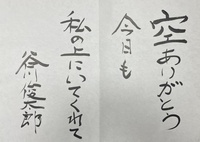 空ありがとう
今日も
私の上にいてくれて
谷川俊太郎